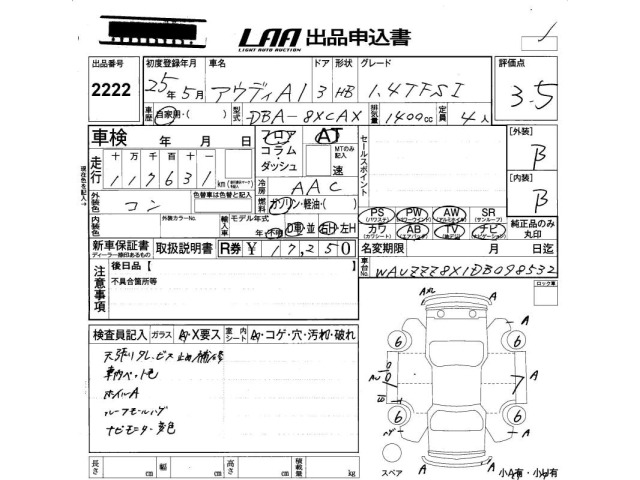 LAA 出品申込書
LIGHT AUTO AUCTION
出品番号 初度登録年月 車名 ドア 形状 グレード 評価点
2222 25年5月 アウディA1 3 HB 1.4TFSI 3.5
車歴 自家用・( ) 型式 DBA-8XCAX 排気量 1400cc 定員 4人
車検 年 月 日 フロア AT セールスポイント [外装]
コラム・ダッシュ MTのみ記入 速 B
走行 十万千百十一
117631 km
冷房 AAC [内装]
外装色 コン 色替車は色替と記入 燃料 ガソリン・軽油・( ) B
PS PW AW SR
(パワステ) (パワーウインド) (アルミホイル) (サンルーフ)
内装色 外装カラーNo. 輸入車 モデル年式 年 不明 D車・並 右H・左H カワ AB TV ナビ 純正品のみ丸印
(レザーシート) (エアバッグ) (ナビゲーション)
新車保証書 取扱説明書 R券 ¥ 17,250 名変期限 月 日迄
ディーラー捺印あるもの
注意事項 後日品【 】 車台No. WAUZZZ8X1DB098532
不具合箇所等 ロック車
検査員記入 ガラス A・X要ス 室内シート A・コゲ・穴・汚れ・破れ
天張りタレ、ビス止め補修
車内ペット色
ホイルA
ルーフモールハゲ
ナビモニター変色
A A
6 6
A
6 6
A A
スペア 小A有・小U有
長さ cm 幅 cm 高さ cm 積載量 kg